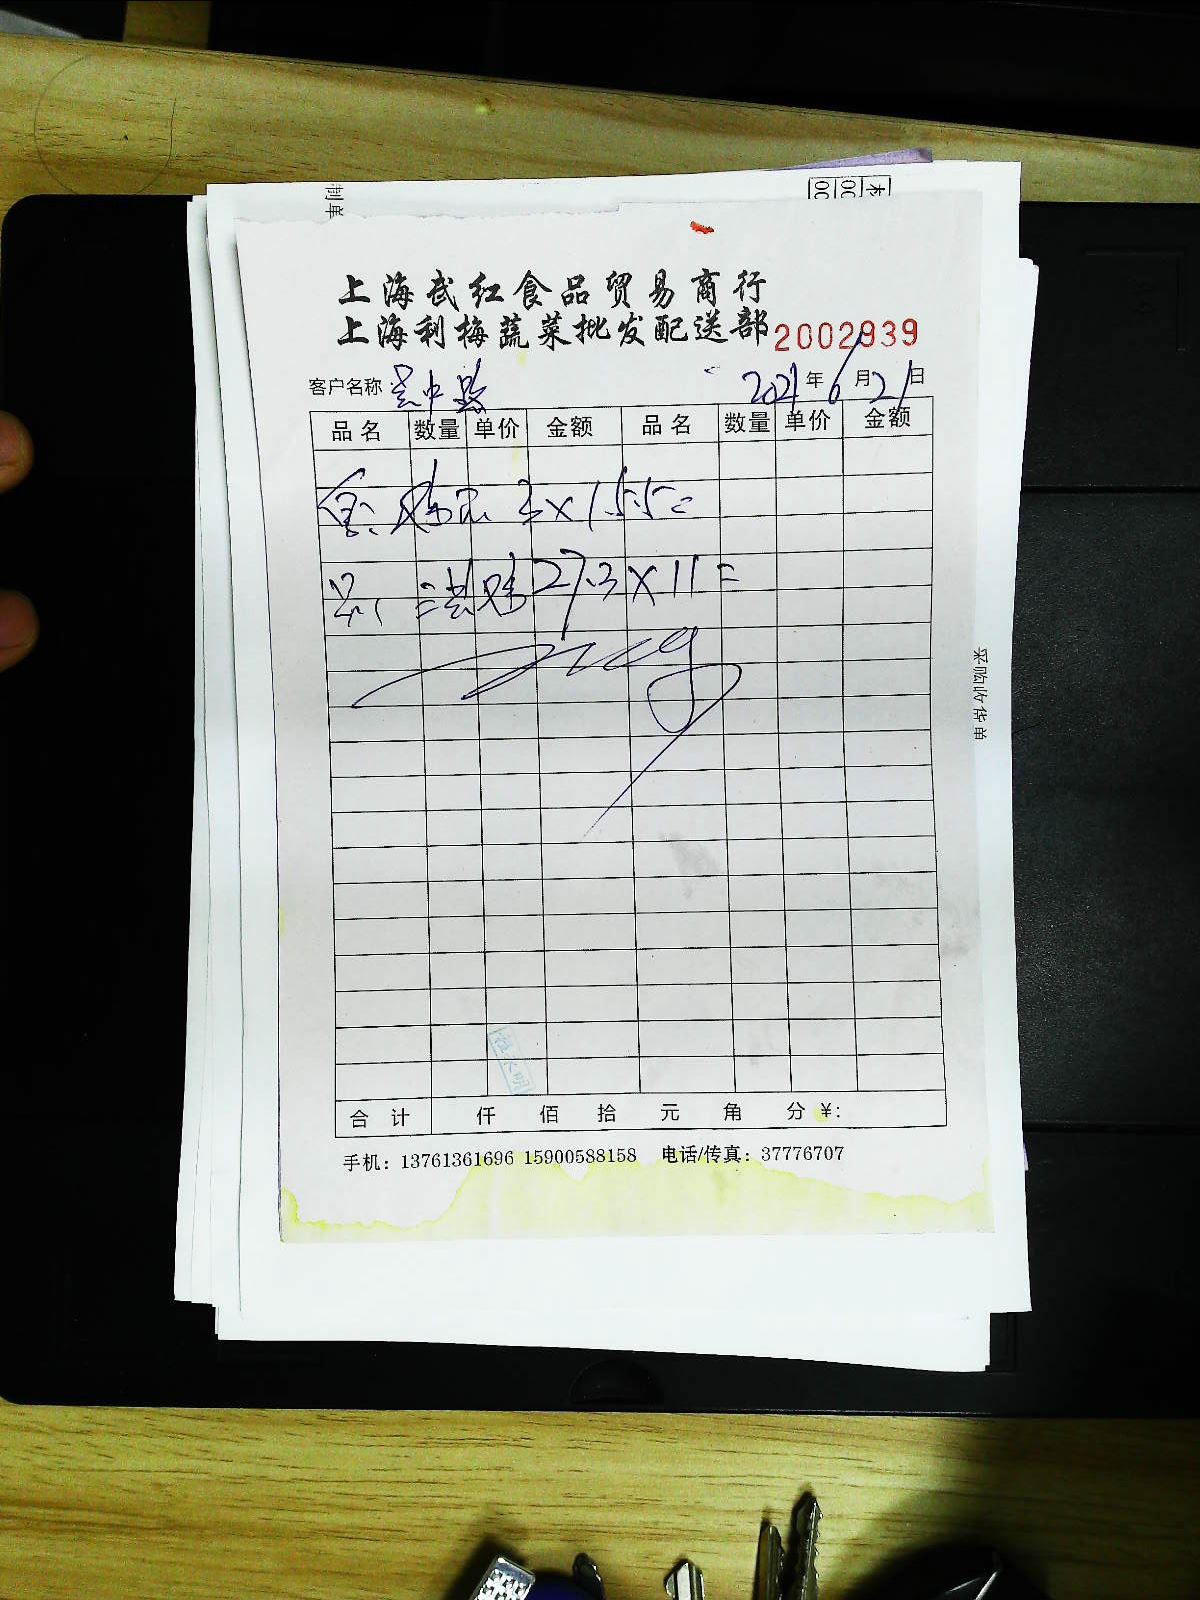 制单
上海武红食品贸易商行
上海利梅蔬菜批发配送部 2002939
客户名称: 吴中路 2021年6月21日
品名 数量 单价 金额 品名 数量 单价 金额
3×15.5=
27.3×11=
采购收货单
合计 仟 佰 拾 元 角 分 ¥:
手机: 13761361696 15900588158 电话/传真: 37776707